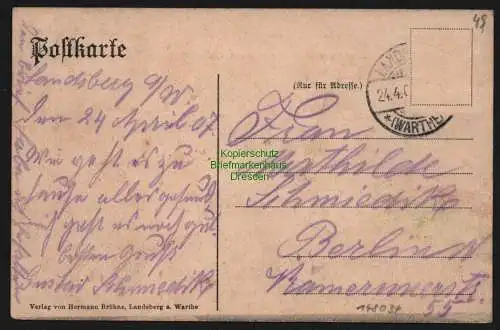 49
Postkarte
(Nur für Adresse.)
24.4.
*(WARTHE)
Landsberg a/W.
den 24 April 07.
Wie geht es zu
hause alles gesund
mir geht es noch gut
besten Gruß
Gustav Schmiedike
Frau
Mathilde
Schmiedike
Berlin
Kamerunerstr.
55
148034
Kopierschutz
Briefmarkenhaus
Dresden
Verlag von Hermann Brühns, Landsberg a. Warthe